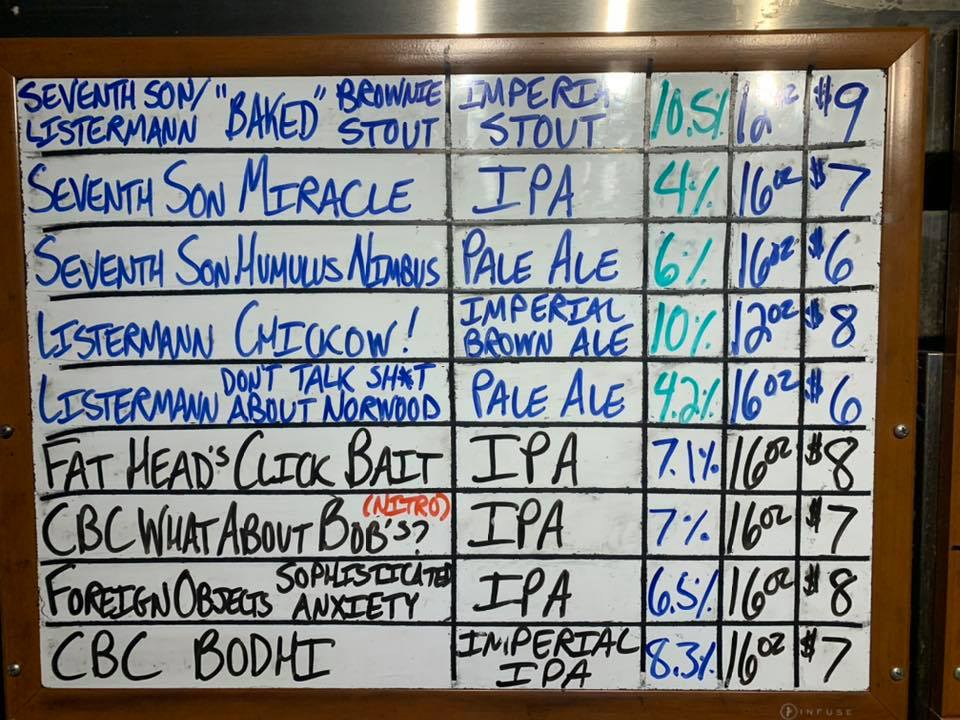 SEVENTH SON/ LISTERMANN "BAKED" BROWNIE STOUT IMPERIAL STOUT 10.5% 12oz $9
SEVENTH SON MIRACLE IPA 4% 16oz $7
SEVENTH SON HUMULUS NIMBUS PALE ALE 6% 16oz $6
LISTERMANN CHICKOW! IMPERIAL BROWN ALE 10% 12oz $8
LISTERMANN DON'T TALK SH*T ABOUT NORWOOD PALE ALE 4.2% 16oz $6
FAT HEAD'S CLICK BAIT IPA 7.1% 16oz $8
CBC WHAT ABOUT BOB'S? (NITRO) IPA 7% 16oz $7
FOREIGN OBJECTS SOPHISTICATED ANXIETY IPA 6.5% 16oz $8
CBC BODHI IMPERIAL IPA 8.3% 16oz $7
INFUSE